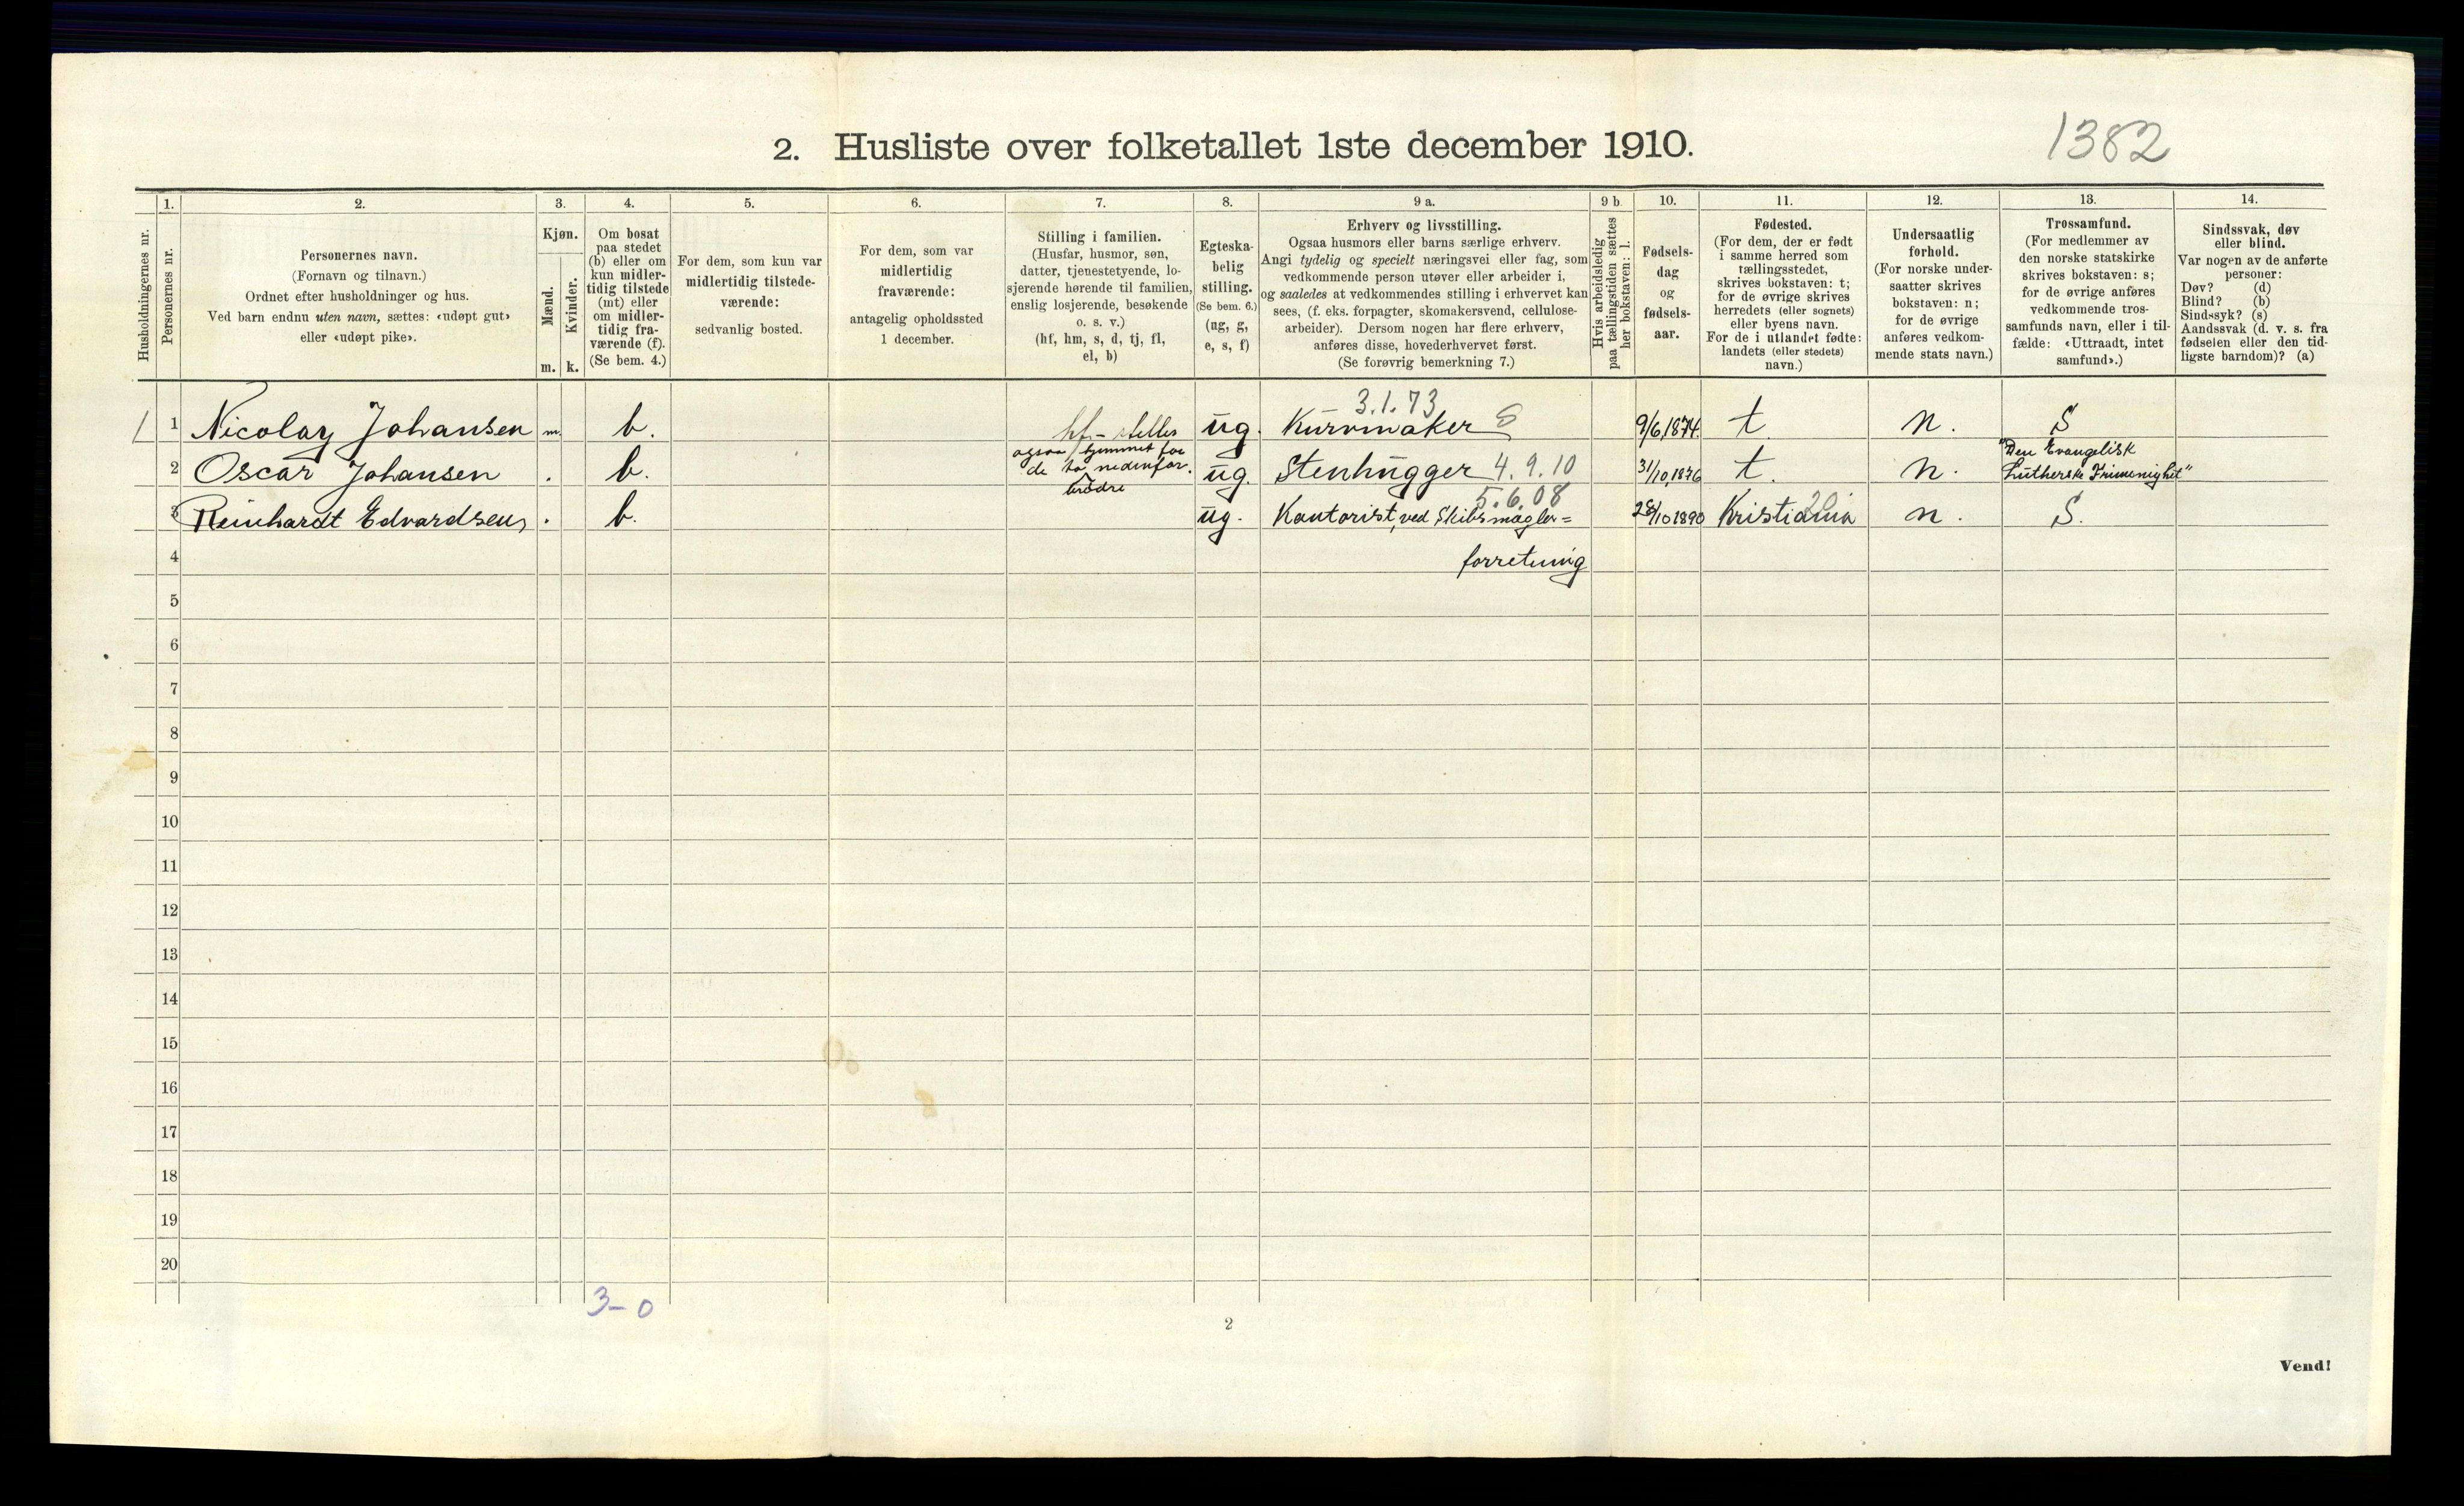 2. Husliste over folketallet 1ste december 1910.
1382
Husholdningernes nr.
1.
Personernes nr.
2.
Personernes navn.
(Fornavn og tilnavn.)
Ordnet efter husholdninger og hus.
Ved barn endnu uten navn, sættes: «udøpt gut»
eller «udøpt pike».
3.
Kjøn.
Mænd.
Kvinder.
m. k.
4.
Om bosat
paa stedet
(b) eller om
kun midler-
tidig tilstede
(mt) eller
om midler-
tidig fra-
værende (f).
(Se bem. 4.)
5.
For dem, som kun var
midlertidig tilstede-
værende:
sedvanlig bosted.
6.
For dem, som var
midlertidig
fraværende:
antagelig opholdssted
1 december.
7.
Stilling i familien.
(Husfar, husmor, søn,
datter, tjenestetyende, lo-
sjerende hørende til familien,
enslig losjerende, besøkende
o. s. v.)
(hf, hm, s, d, tj, fl,
el, b)
8.
Egteska-
belig
stilling.
(Se bem. 6.)
(ug, g,
e, s, f)
9 a.
Erhverv og livsstilling.
Ogsaa husmors eller barns særlige erhverv.
Angi tydelig og specielt næringsvei eller fag, som
vedkommende person utøver eller arbeider i,
og saaledes at vedkommendes stilling i erhvervet kan
sees, (f. eks. forpagter, skomakersvend, cellulose-
arbeider). Dersom nogen har flere erhverv,
anføres disse, hovederhvervet først.
(Se forøvrig bemerkning 7.)
9 b.
Hvis arbeidsledig
paa tællingstiden sættes
her bokstaven: l.
10.
Fødsels-
dag
og
fødsels-
aar.
11.
Fødested.
(For dem, der er født
i samme herred som
tællingsstedet,
skrives bokstaven: t;
for de øvrige skrives
herredets (eller sognets)
eller byens navn.
For de i utlandet fødte:
landets (eller stedets)
navn.)
12.
Undersaatlig
forhold.
(For norske under-
saatter skrives
bokstaven: n;
for de øvrige
anføres vedkom-
mende stats navn.)
13.
Trossamfund.
(For medlemmer av
den norske statskirke
skrives bokstaven: s;
for de øvrige anføres
vedkommende tros-
samfunds navn, eller i til-
fælde: «Uttraadt, intet
samfund».)
14.
Sindssvak, døv
eller blind.
Var nogen av de anførte
personer:
Døv? (d)
Blind? (b)
Sindssyk? (s)
Aandssvak (d. v. s. fra
fødselen eller den tid-
ligste barndom)? (a)
3.1.73
1 1 Nicolay Johansen m. b. hf. - steller ug. Kurvmaker 9/6 1874. t. n. S
ogsaa hjemmet for
de to nedenfor.
brødre
2 Oscar Johansen . b. ug. Stenhugger 4.9.10 31/10 1876 t. n. "Den Evangelisk
Lutherske Frimenighet"
5.6.08
3 Reinhardt Edvardsen . b. ug. Kontorist, ved Skibsmægler= 28/10 1890 Kristiania n. S.
4 forretning
5
6
7
8
9
10
11
12
13
14
15
16
17
18
19
20
3-0
2
Vend!